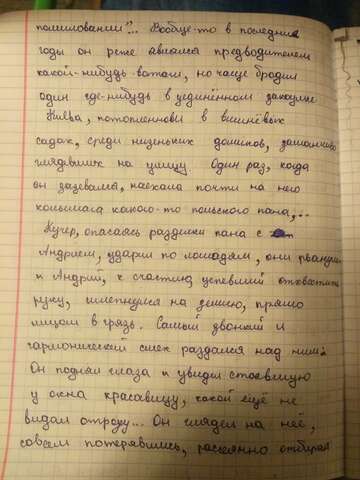 помиловании?... Вообще-то в последние
годы он реже являлся предводителем
какой-нибудь ватаги, но чаще бродил
один где-нибудь в уединённом закоулке
Киева, потопленнови в вишнёвых
садах, среди низеньких домиков, заманчиво
глядевших на улицу. Один раз, когда
он зазевался, наехала почти на него
колымага какого-то польского пана,...
Кучер, опасаясь разделки пана с
Андрием, ударил по лошадям, они рванули
и Андрий, к счастию, успевший отхватить
руку, шлепнулся на землю, прямо
лицом в грязь. Самый звонкий и
гармонический смех раздался над ним.
Он поднял глаза и увидел стоявшую
у окна красавицу, какой ещё не
видал отроду... Он глядел на неё,
совсем потерявшись, рассеянно отбирая